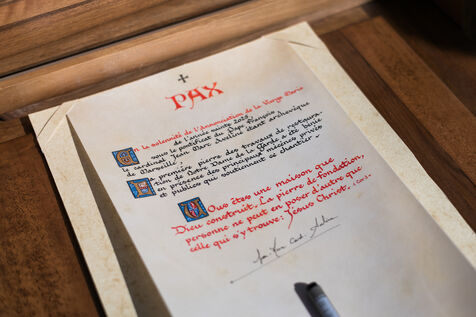 PAX
En la solennité de l'Annonciation de la Vierge Marie
de l'année sainte 2025
sous le pontificat du Pape François,
le cardinal Jean Marc Aveline étant archevêque
de Marseille,
La première pierre des travaux de restaura-
tion de Notre Dame de la Garde a été bénie
en présence des principaux mécènes privés
et publics qui soutiennent ce chantier.
Vous êtes une maison que
Dieu construit. La pierre de fondation,
personne ne peut en poser d'autre que
celle qui s'y trouve: Jésus Christ.